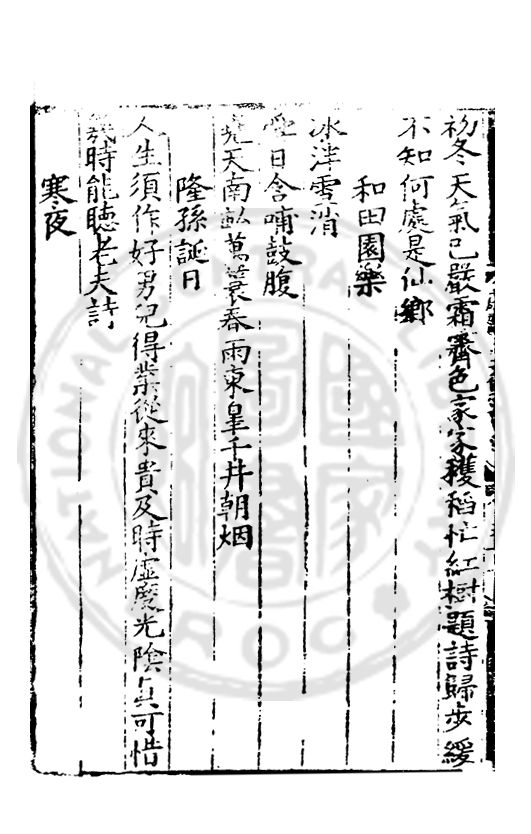 初冬天氣已嚴霜霽色家家穫稻忙紅樹題詩歸步緩
不知何處是仙鄉
和田園樂
冰泮雪消
日含哺鼓腹
堯天南畝萬蓑春雨東皐千井朝烟
隆孫誕日
人生須作好男兒得業從來貴及時虛廢光陰真可惜
幾時能聽老夫詩
寒夜
NATIONAL CENTRAL LIBRARY